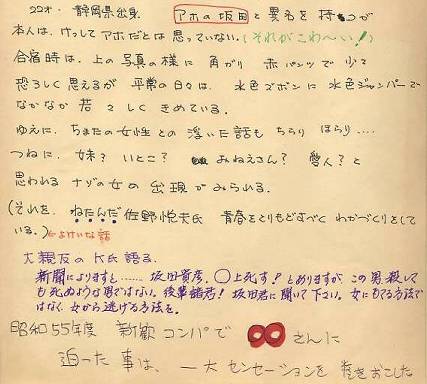 22才・静岡県出身. アホの坂田と異名を持つが
本人は、けっしてアホだとは思っていない。(それがこわ〜い!)
合宿時は、上の写真の様に 角がり 赤パンツで 少々
恐ろしく思えるが 平常の日々は、水色ズボンに 水色ジャンパーで
なかなか 若々しく きめている。
ゆえに、ちまたの女性との 浮いた話も ちらり ほらり….
つねに、妹? いとこ? おねえさん? 愛人? と
思われる ナゾの女の 出現が みられる。
(それを、ねたんだ 佐野悦夫氏 青春をとりもどすべく わかづくりをして
いる。) ←よけいな話
大親友のK氏語る.
新聞によりますと…… 坂田資彦、○上死す! とありますが、この男、殺して
も死ぬような男ではない。後輩諸君! 坂田君に聞いて下さい。女にもてる方法で
はなく、女から逃げる方法を。
昭和55年度 新歓コンパで さんに
迫った事は、一大センセーションを巻きおこした